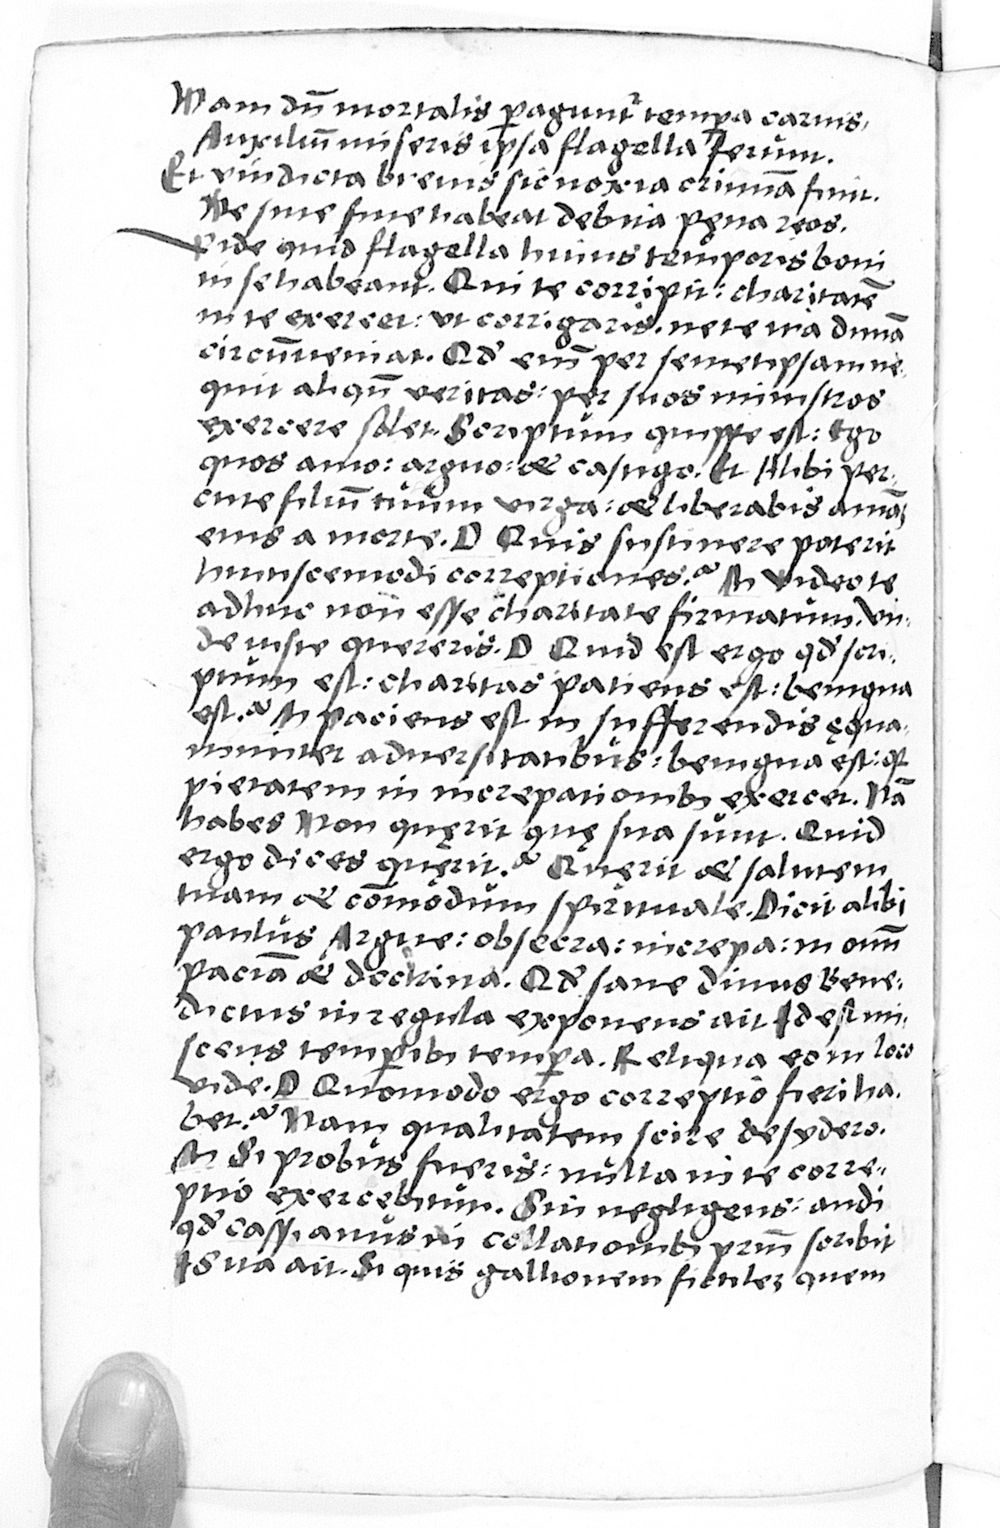 Nam dū mortalis ꝑagunt᷑ temꝑa carnis,
Auxiliū miseris ipsa flagella ferunt.
Et vindicta breuis sic noxia criminā finit.
Ne sine fine habeat debita pęna reos.
Vide quid flagella huius temporis boni
in se habeant. Qui te corripit: charitatē
in te exercet: vt corrigaris. ne te ira diuinā
circūueniat. Qd̓ enī per semetipsam ne-
quit aliqn̄ veritas: per suos ministros
exercere solet. Scriptum quippe est: Ego
quos amo: arguo: & castigo. Et Alibi per-
cute filiū tuum virga: & liberabis aīaʒ
eius a morte. D Quis sustinere poterit
huiuscemodi correptiones? M Video te
adhuc non esse charitate firmatum. vn-
de iuste quereris. D Quid est ergo qd̓ scri-
ptum est: charitas patiens est: benigna
est? M paciens est in sufferendis ęqua-
nimiter aduersitatibus: benigna est: qꝛ
pietatem in increpationibꝫ exercet. Nā
habes Non quęrit quę sua sunt. Quid
ergo dices quęrit? Querit & salutem
tuam & cōmodum spirituale. Dicit alibi
paulus Argue: obsecra: increpa: in omī
paciā & doctrina. Qd̓ sane diuus Bene-
dictus in regula exponens ait Id est mi-
scens temꝑibꝫ temꝑa. Reliqua eo in loco
vide. D Quomodo ergo correptio fieri ha-
bet? Nam qualitatem scire desydero.
M Si probus fueris: nulla in te corre-
ptio exercebitur. Sin negligens: audi
qd̓ cassianus in collationibꝫ prim̄ scribit
Is ita ait. Si quis gallionem fictileʒ quem